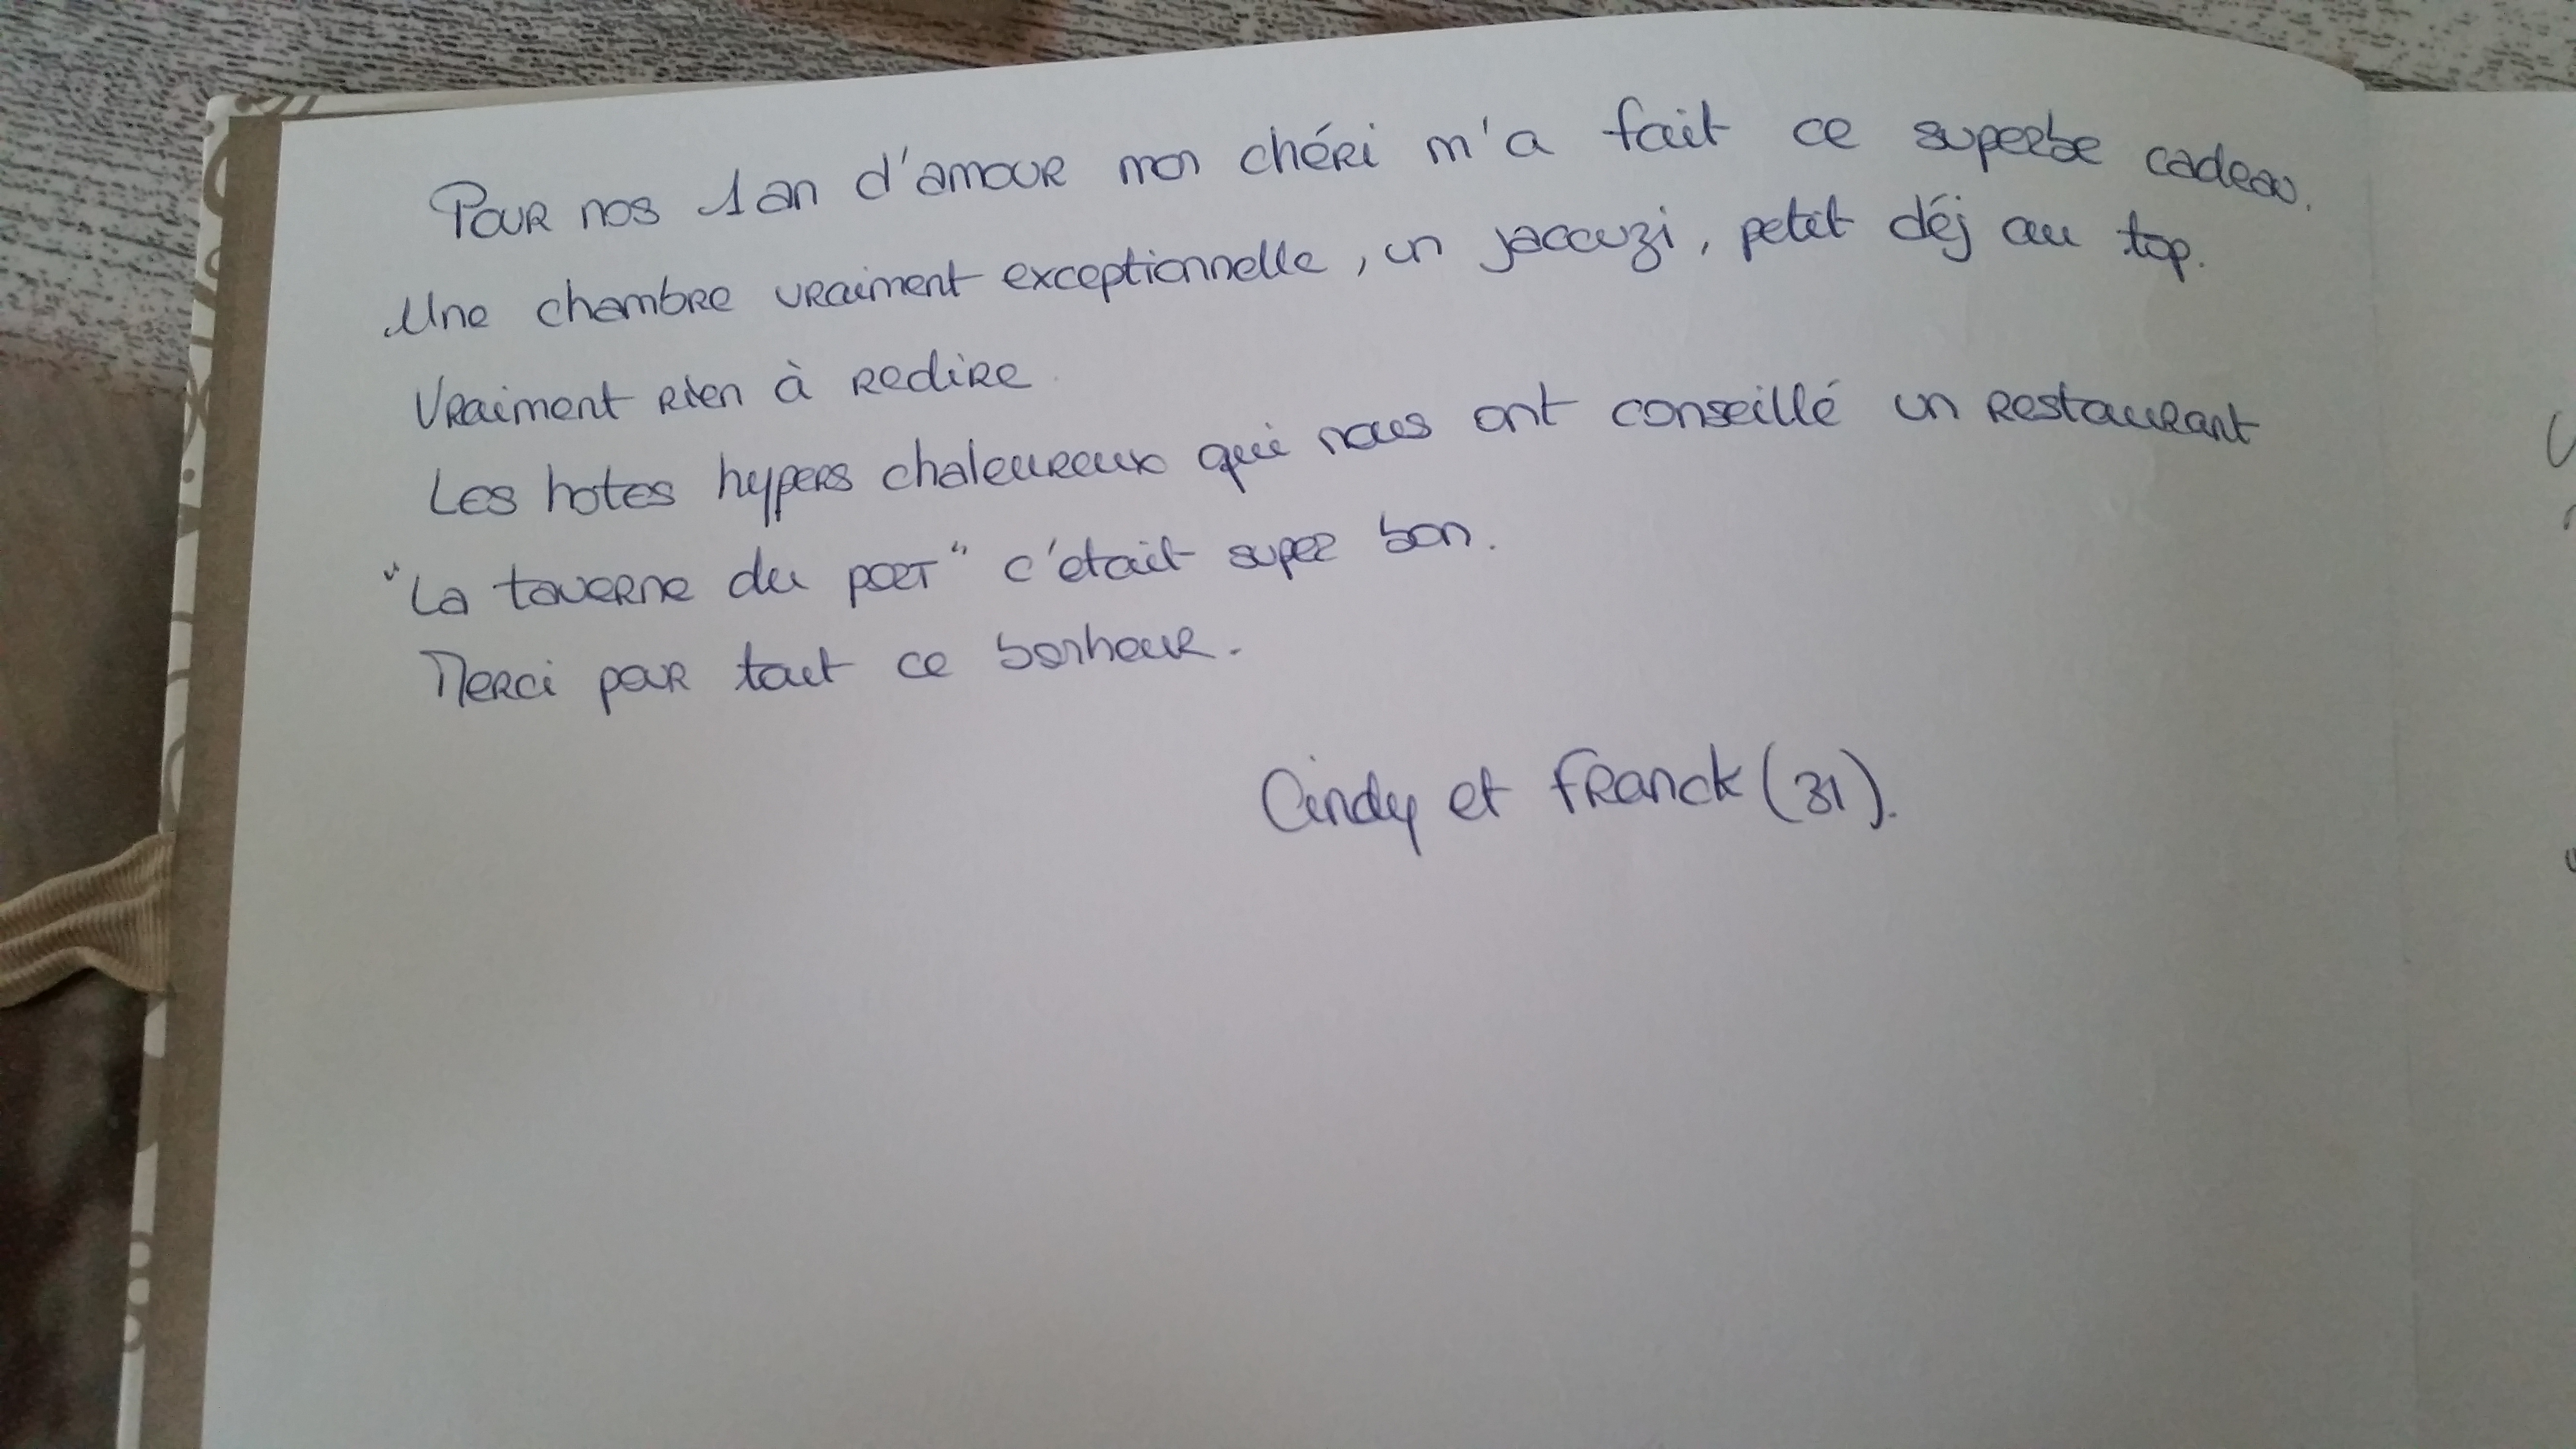 Pour nos 1 an d'amour mon chéri m'a fait ce superbe cadeau.
Une chambre vraiment exceptionnelle, un jaccuzi, petit déj au top.
Vraiment rien à redire.
Les hotes hypers chaleureux qui nous ont conseillé un restaurant
"La taverne du port" c'était super bon.
Merci pour tout ce bonheur.
Cindy et Franck (31).